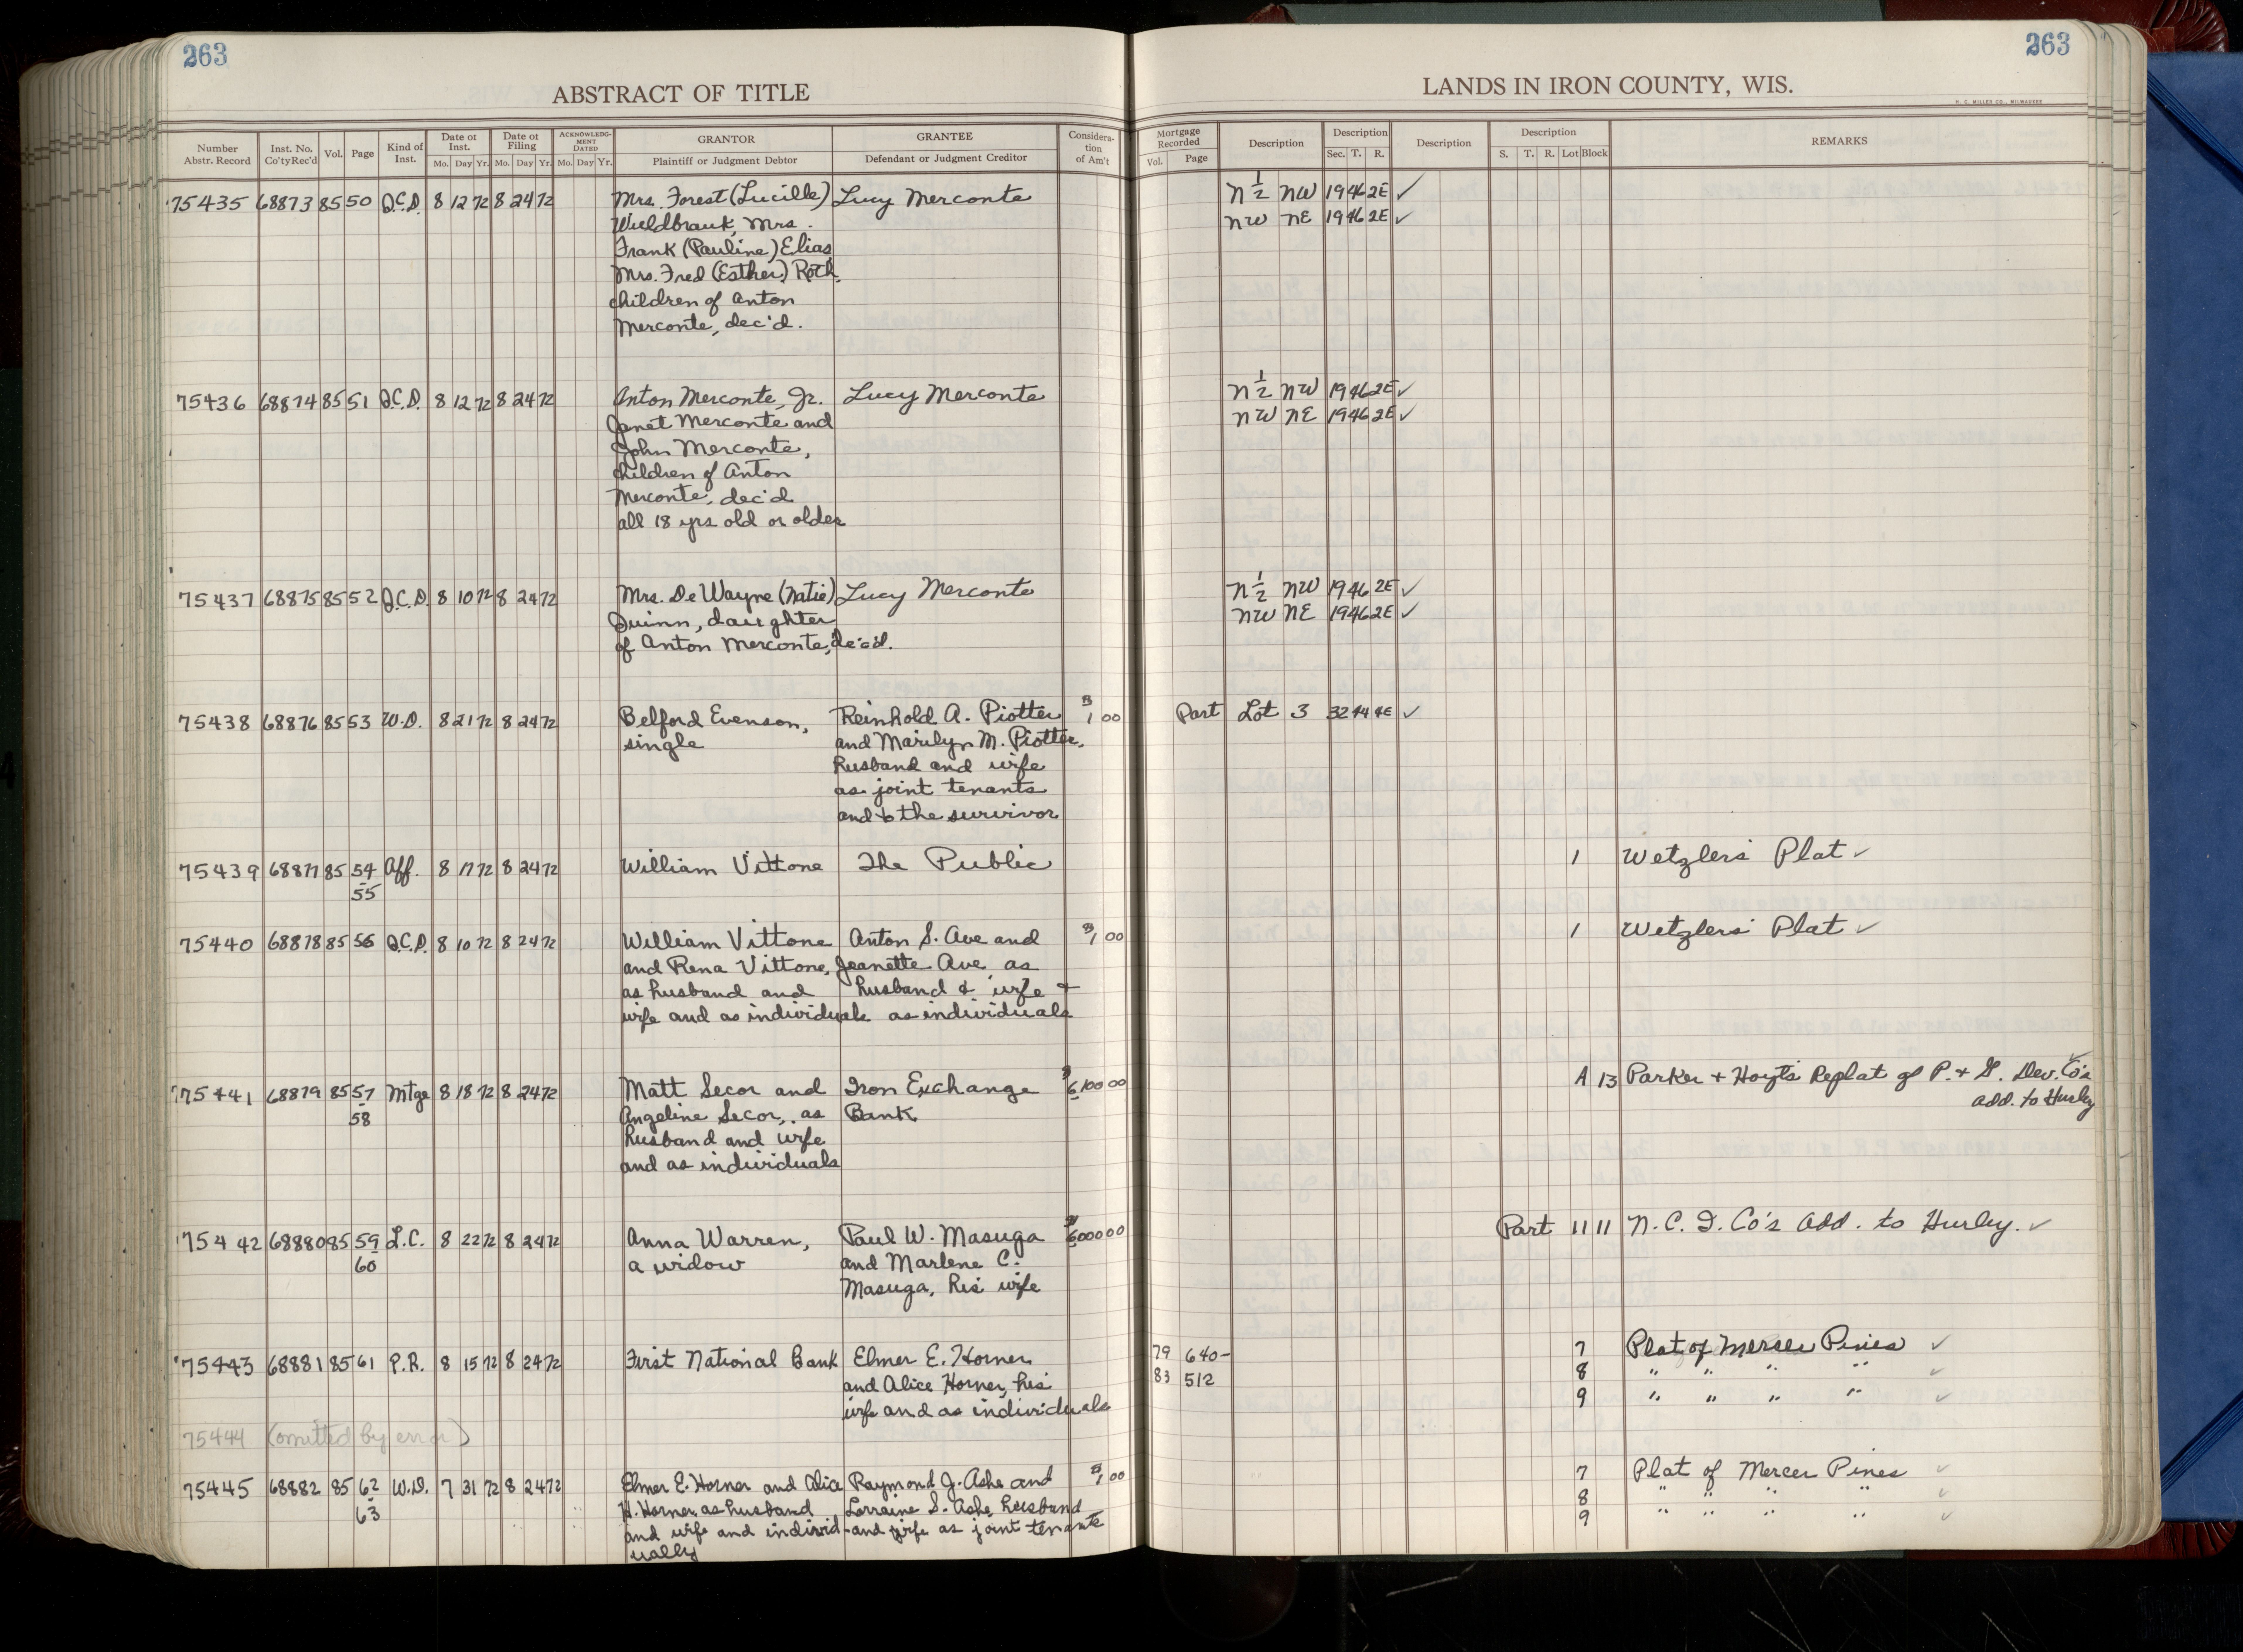 263
263
ABSTRACT OF TITLE
LANDS IN IRON COUNTY, WIS.
H. C. MILLER CO., MILWAUKEE
Number Abstr. Record | Inst. No. Co'ty Rec'd | Vol. | Page | Kind of Inst. | Date of Inst. Mo. Day Yr. | Date of Filing Mo. Day Yr. | ACKNOWLEDGMENT DATED Mo. Day Yr. | GRANTOR Plaintiff or Judgment Debtor | GRANTEE Defendant or Judgment Creditor | Consideration of Am't | Mortgage Recorded Vol. Page | Description | Description Sec. T. R. | Description | Description S. T. R. Lot Block | REMARKS
75435 68873 85 50 Q.C.D. 8 12 72 8 24 72 Mrs. Forest (Lucille) Lucy Merconte N 1/2 NW 19 46 2E ✓
Wieldbrauk, Mrs. NW NE 19 46 2E ✓
Frank (Pauline) Elias
Mrs. Fred (Esther) Roth
children of Anton
Merconte, dec'd.
75436 68874 85 51 Q.C.D. 8 12 72 8 24 72 Anton Merconte, Jr. Lucy Merconte N 1/2 NW 19 46 2E ✓
Janet Merconte and NW NE 19 46 2E ✓
John Merconte,
children of Anton
Merconte, dec'd
all 18 yrs old or older
75437 68875 85 52 Q.C.D. 8 10 72 8 24 72 Mrs. De Wayne (Natie) Lucy Merconte N 1/2 NW 19 46 2E ✓
Quinn, daughter NW NE 19 46 2E ✓
of Anton Merconte, dec'd.
75438 68876 85 53 W.D. 8 21 72 8 24 72 Belford Evenson, Reinhold A. Piotter $1 00 Part Lot 3 32 44 4E ✓
single and Marilyn M. Piotter,
husband and wife
as joint tenants
and to the survivor
75439 68877 85 54 Aff. 8 17 72 8 24 72 William Vittone The Public 1 Wetzlers' Plat ✓
55
75440 68878 85 56 Q.C.D. 8 10 72 8 24 72 William Vittone Anton S. Ave and $1 00 1 Wetzlers' Plat ✓
and Rena Vittone, Jeanette Ave, as
as husband and husband & wife &
wife and as individuals as individuals
75441 68879 85 57 Mtge 8 18 72 8 24 72 Matt Secor and Iron Exchange $6100 00 A 13 Parker & Hoyt's Replat of P. & G. Dev. Co's ✓
58 Angeline Secor, as Bank add. to Hurley
husband and wife
and as individuals
75442 68880 85 59 L.C. 8 22 72 8 24 72 Anna Warren, Paul W. Masuga $6000 00 Part 11 11 N. C. I. Co's Add. to Hurley. ✓
60 a widow and Marlene C.
Masuga, his wife
75443 68881 85 61 P.R. 8 15 72 8 24 72 First National Bank Elmer E. Horner 79 640- 7 Plat of Mercer Pines ✓
and Alice Horner, his 83 512 8 " " " " ✓
wife and as individuals 9 " " " " ✓
75444 (omitted by error)
75445 68882 85 62 W.D. 7 31 72 8 24 72 Elmer E. Horner and Alice Raymond J. Ashe and $1 00 7 Plat of Mercer Pines ✓
63 H. Horner, as husband Lorraine S. Ashe, husband 8 " " " " ✓
and wife and individ- and wife as joint tenants 9 " " " " ✓
ually